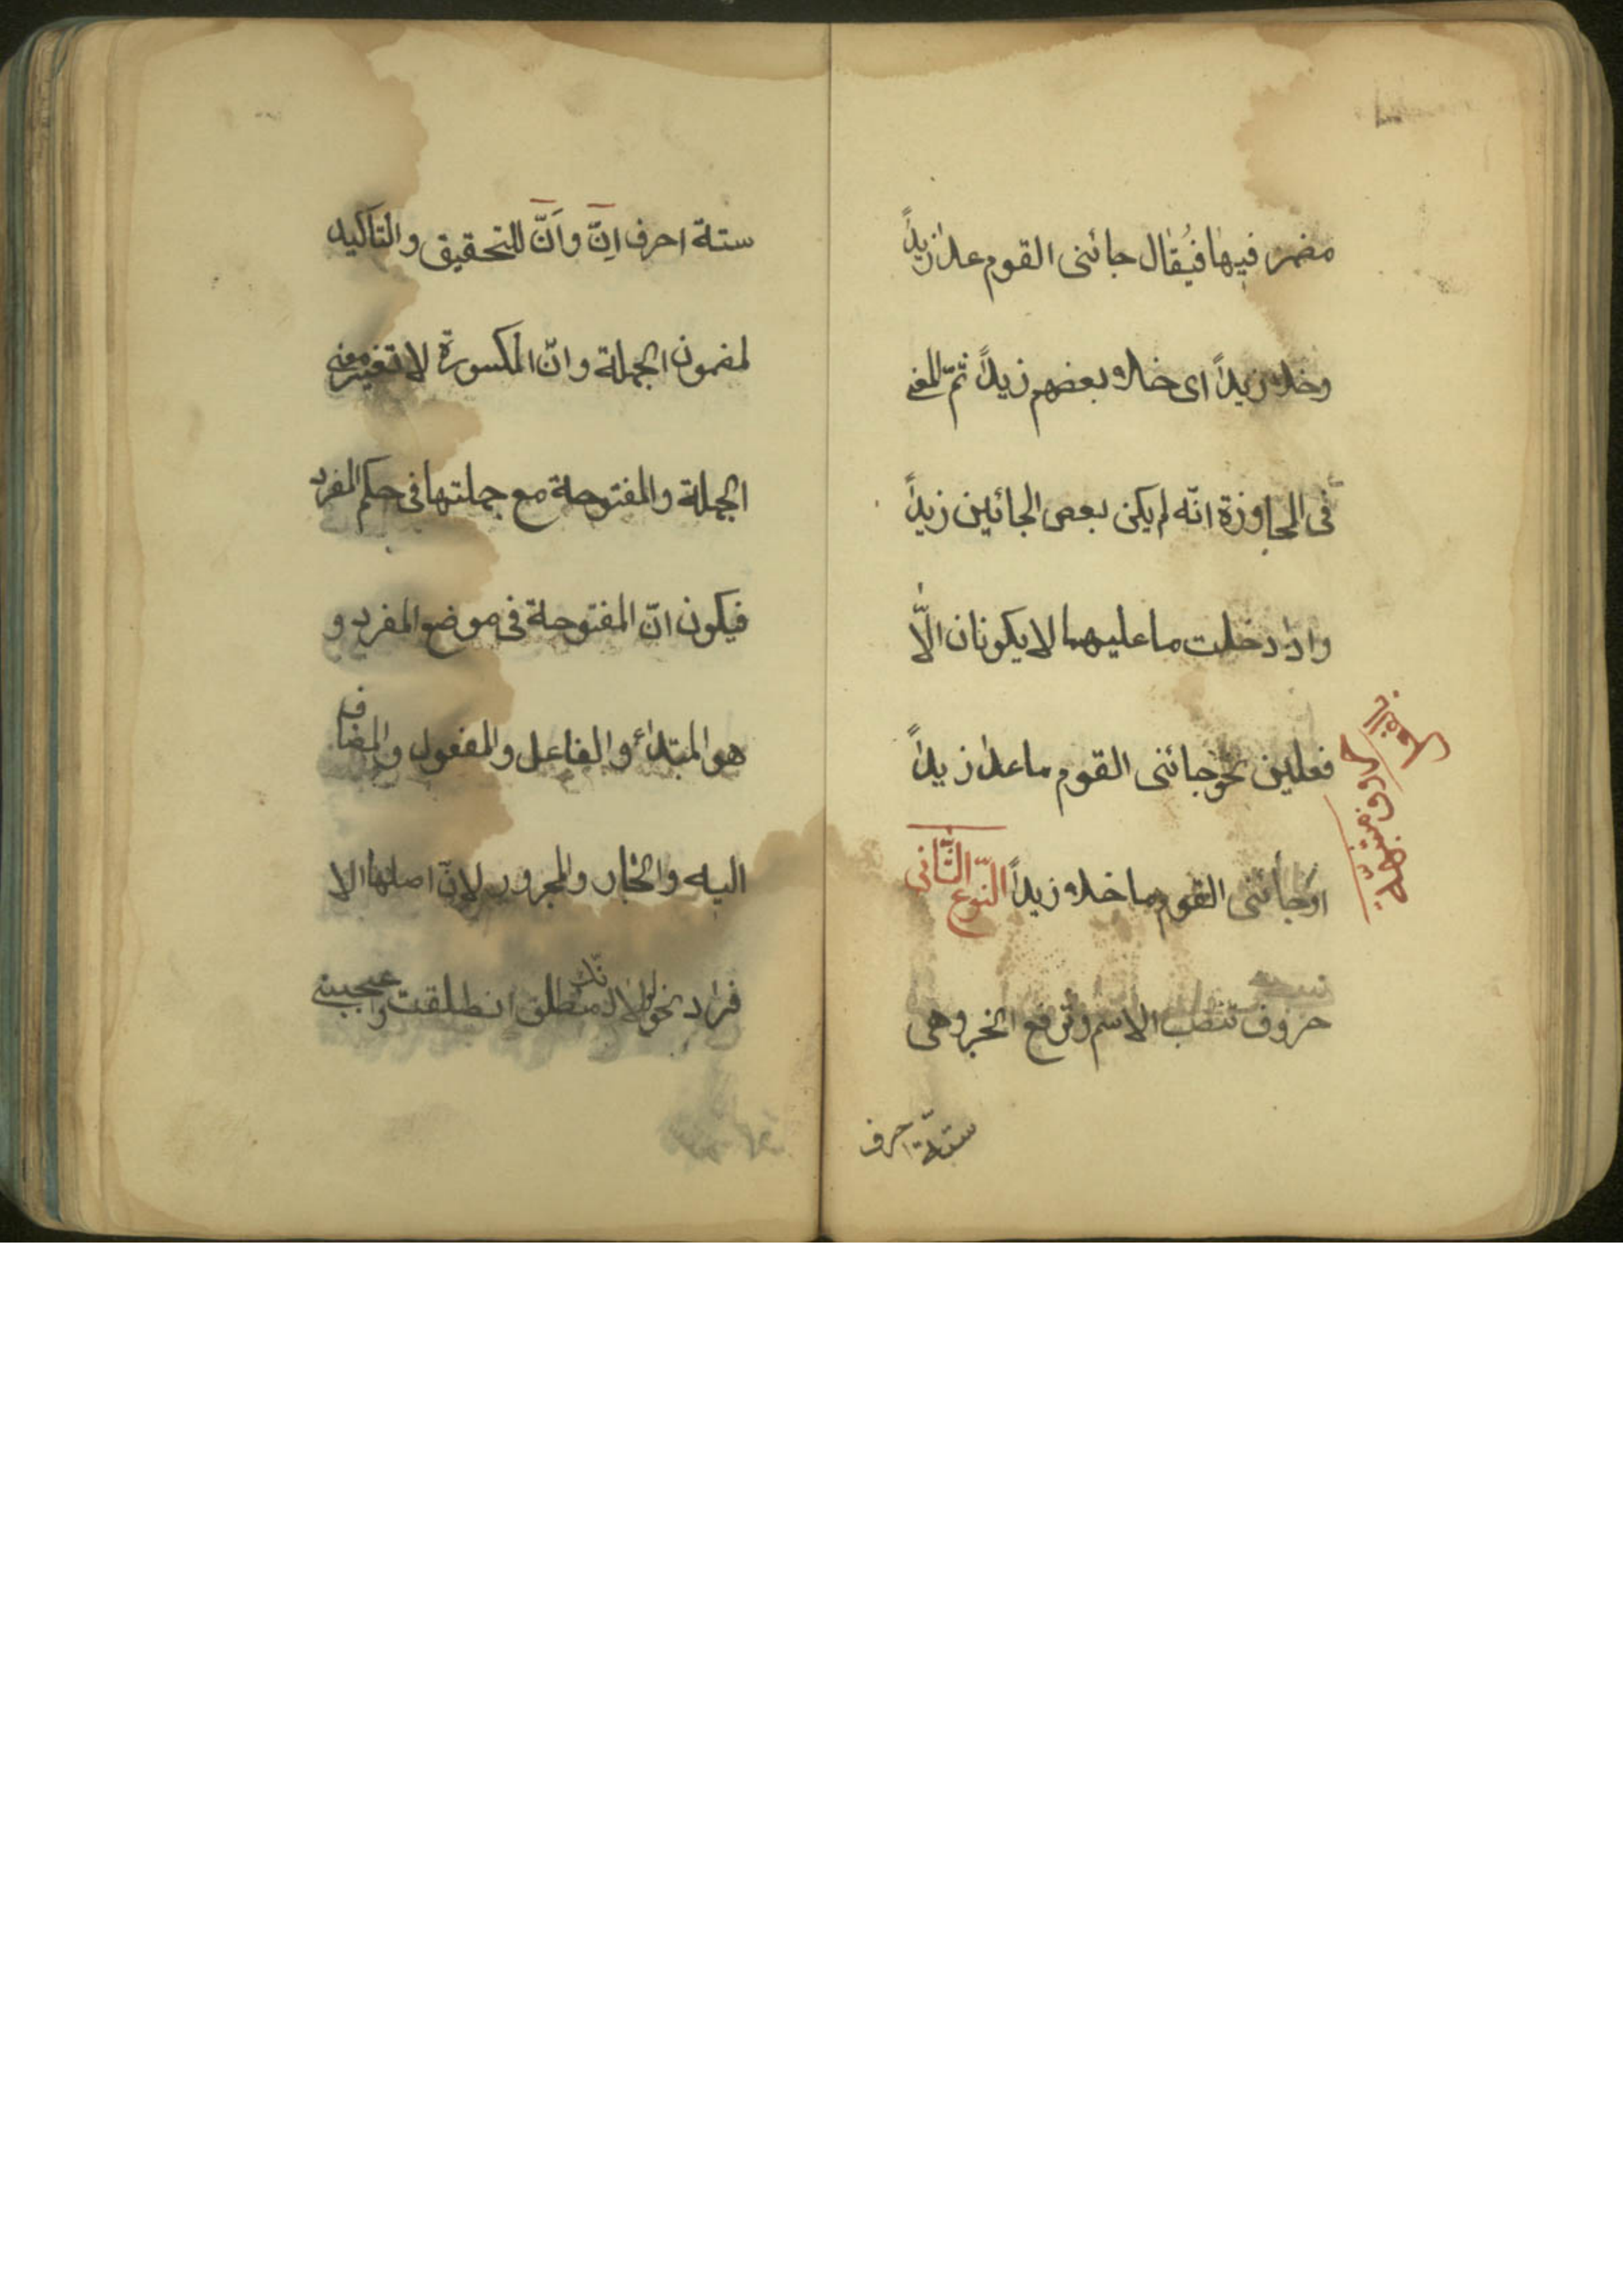 مضمر فيها فيُقال جائنى القوم عدا زيداً
وخلا زيداً اى خلا بعضهم زيداً ثمّ المعنى
فى المجاوزة انّه لم يكن بعض الجائين زيداً
واذا دخلت ما عليهما لا يكونان الّا
فعلين نحو جائنى القوم ما عدا زيداً
او جائنى القوم ما خلا زيداً النّوع الثّانى
حروف تنصب الاسم وترفع الخبر وهى
ستّة احرف
حروف مشبّهة
ستة احرف اِنّ واَنّ للتحقيق والتاكيد
لمضمون الجملة وانّ المكسورة لا تغير معنى
الجملة والمفتوحة مع جملتها فى حكم المفرد
فيكون انّ المفتوحة فى موضع المفرد و
هو المبتداء والفاعل والمفعول والمضاف
اليه والجار والمجرور لانّ اصلها الا
فراد نحو لولا انّك منطلق انطلقت وعجبنى